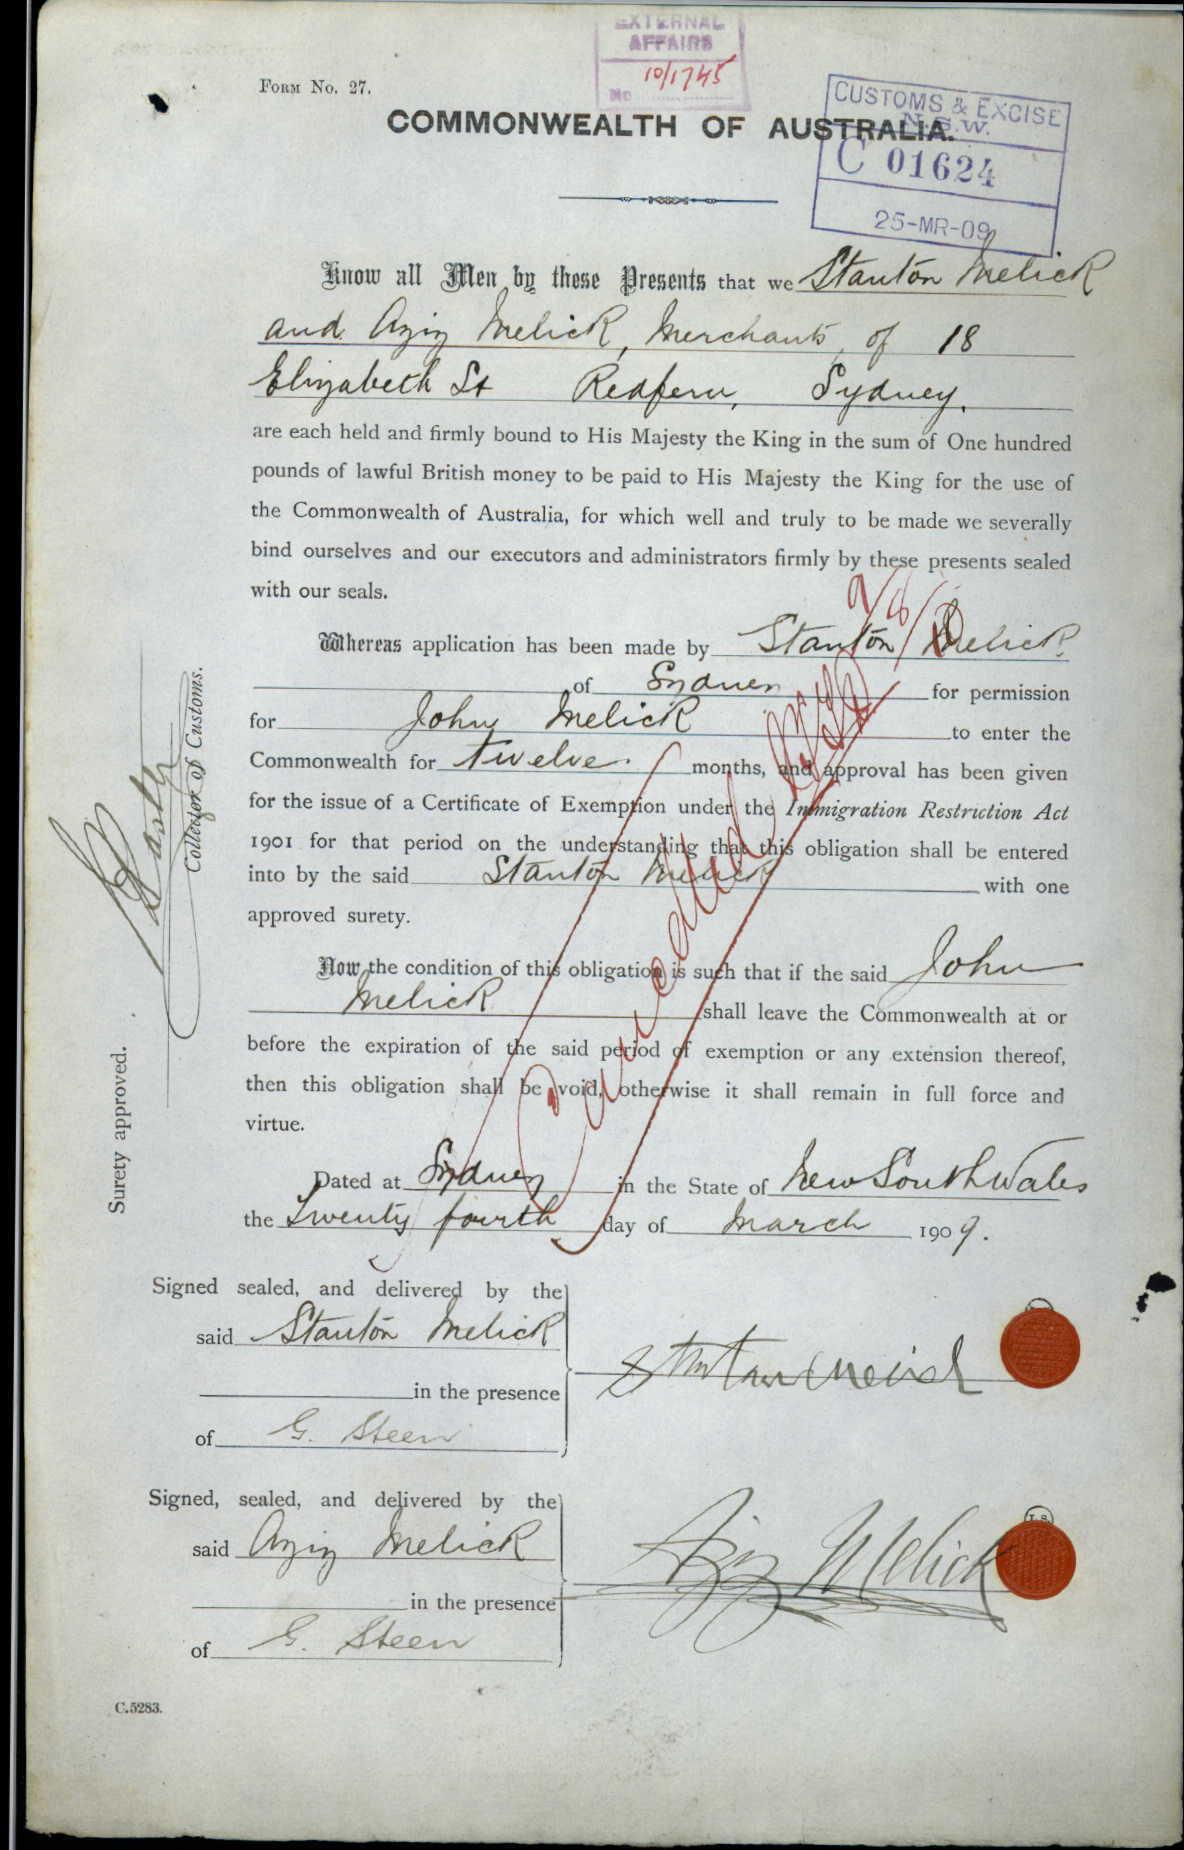 EXTERNAL
AFFAIRS
No 10/1745
Form No. 27.
CUSTOMS & EXCISE
N.S.W.
C 01624
25-MR-09
COMMONWEALTH OF AUSTRALIA.
Know all Men by these Presents that we Stanton Melick
and Aziz Melick, Merchants, of 18
Elizabeth St Redfern, Sydney.
are each held and firmly bound to His Majesty the King in the sum of One hundred
pounds of lawful British money to be paid to His Majesty the King for the use of
the Commonwealth of Australia, for which well and truly to be made we severally
bind ourselves and our executors and administrators firmly by these presents sealed
with our seals.
Whereas application has been made by Stanton Melick
of Sydney for permission
for John Melick to enter the
Commonwealth for twelve months, and approval has been given
for the issue of a Certificate of Exemption under the Immigration Restriction Act
1901 for that period on the understanding that this obligation shall be entered
into by the said Stanton Melick with one
approved surety.
Now the condition of this obligation is such that if the said John
Melick shall leave the Commonwealth at or
before the expiration of the said period of exemption or any extension thereof,
then this obligation shall be void, otherwise it shall remain in full force and
virtue.
Dated at Sydney in the State of New South Wales
the Twenty fourth day of March 1909.
Cancelled
Surety approved.
Collector of Customs.
Signed sealed, and delivered by the
said Stanton Melick
in the presence
of G. Steen
Stantan Melick
Signed, sealed, and delivered by the
said Aziz Melick
in the presence
of G. Steen
Aziz Melick
L.S.
C.5283.